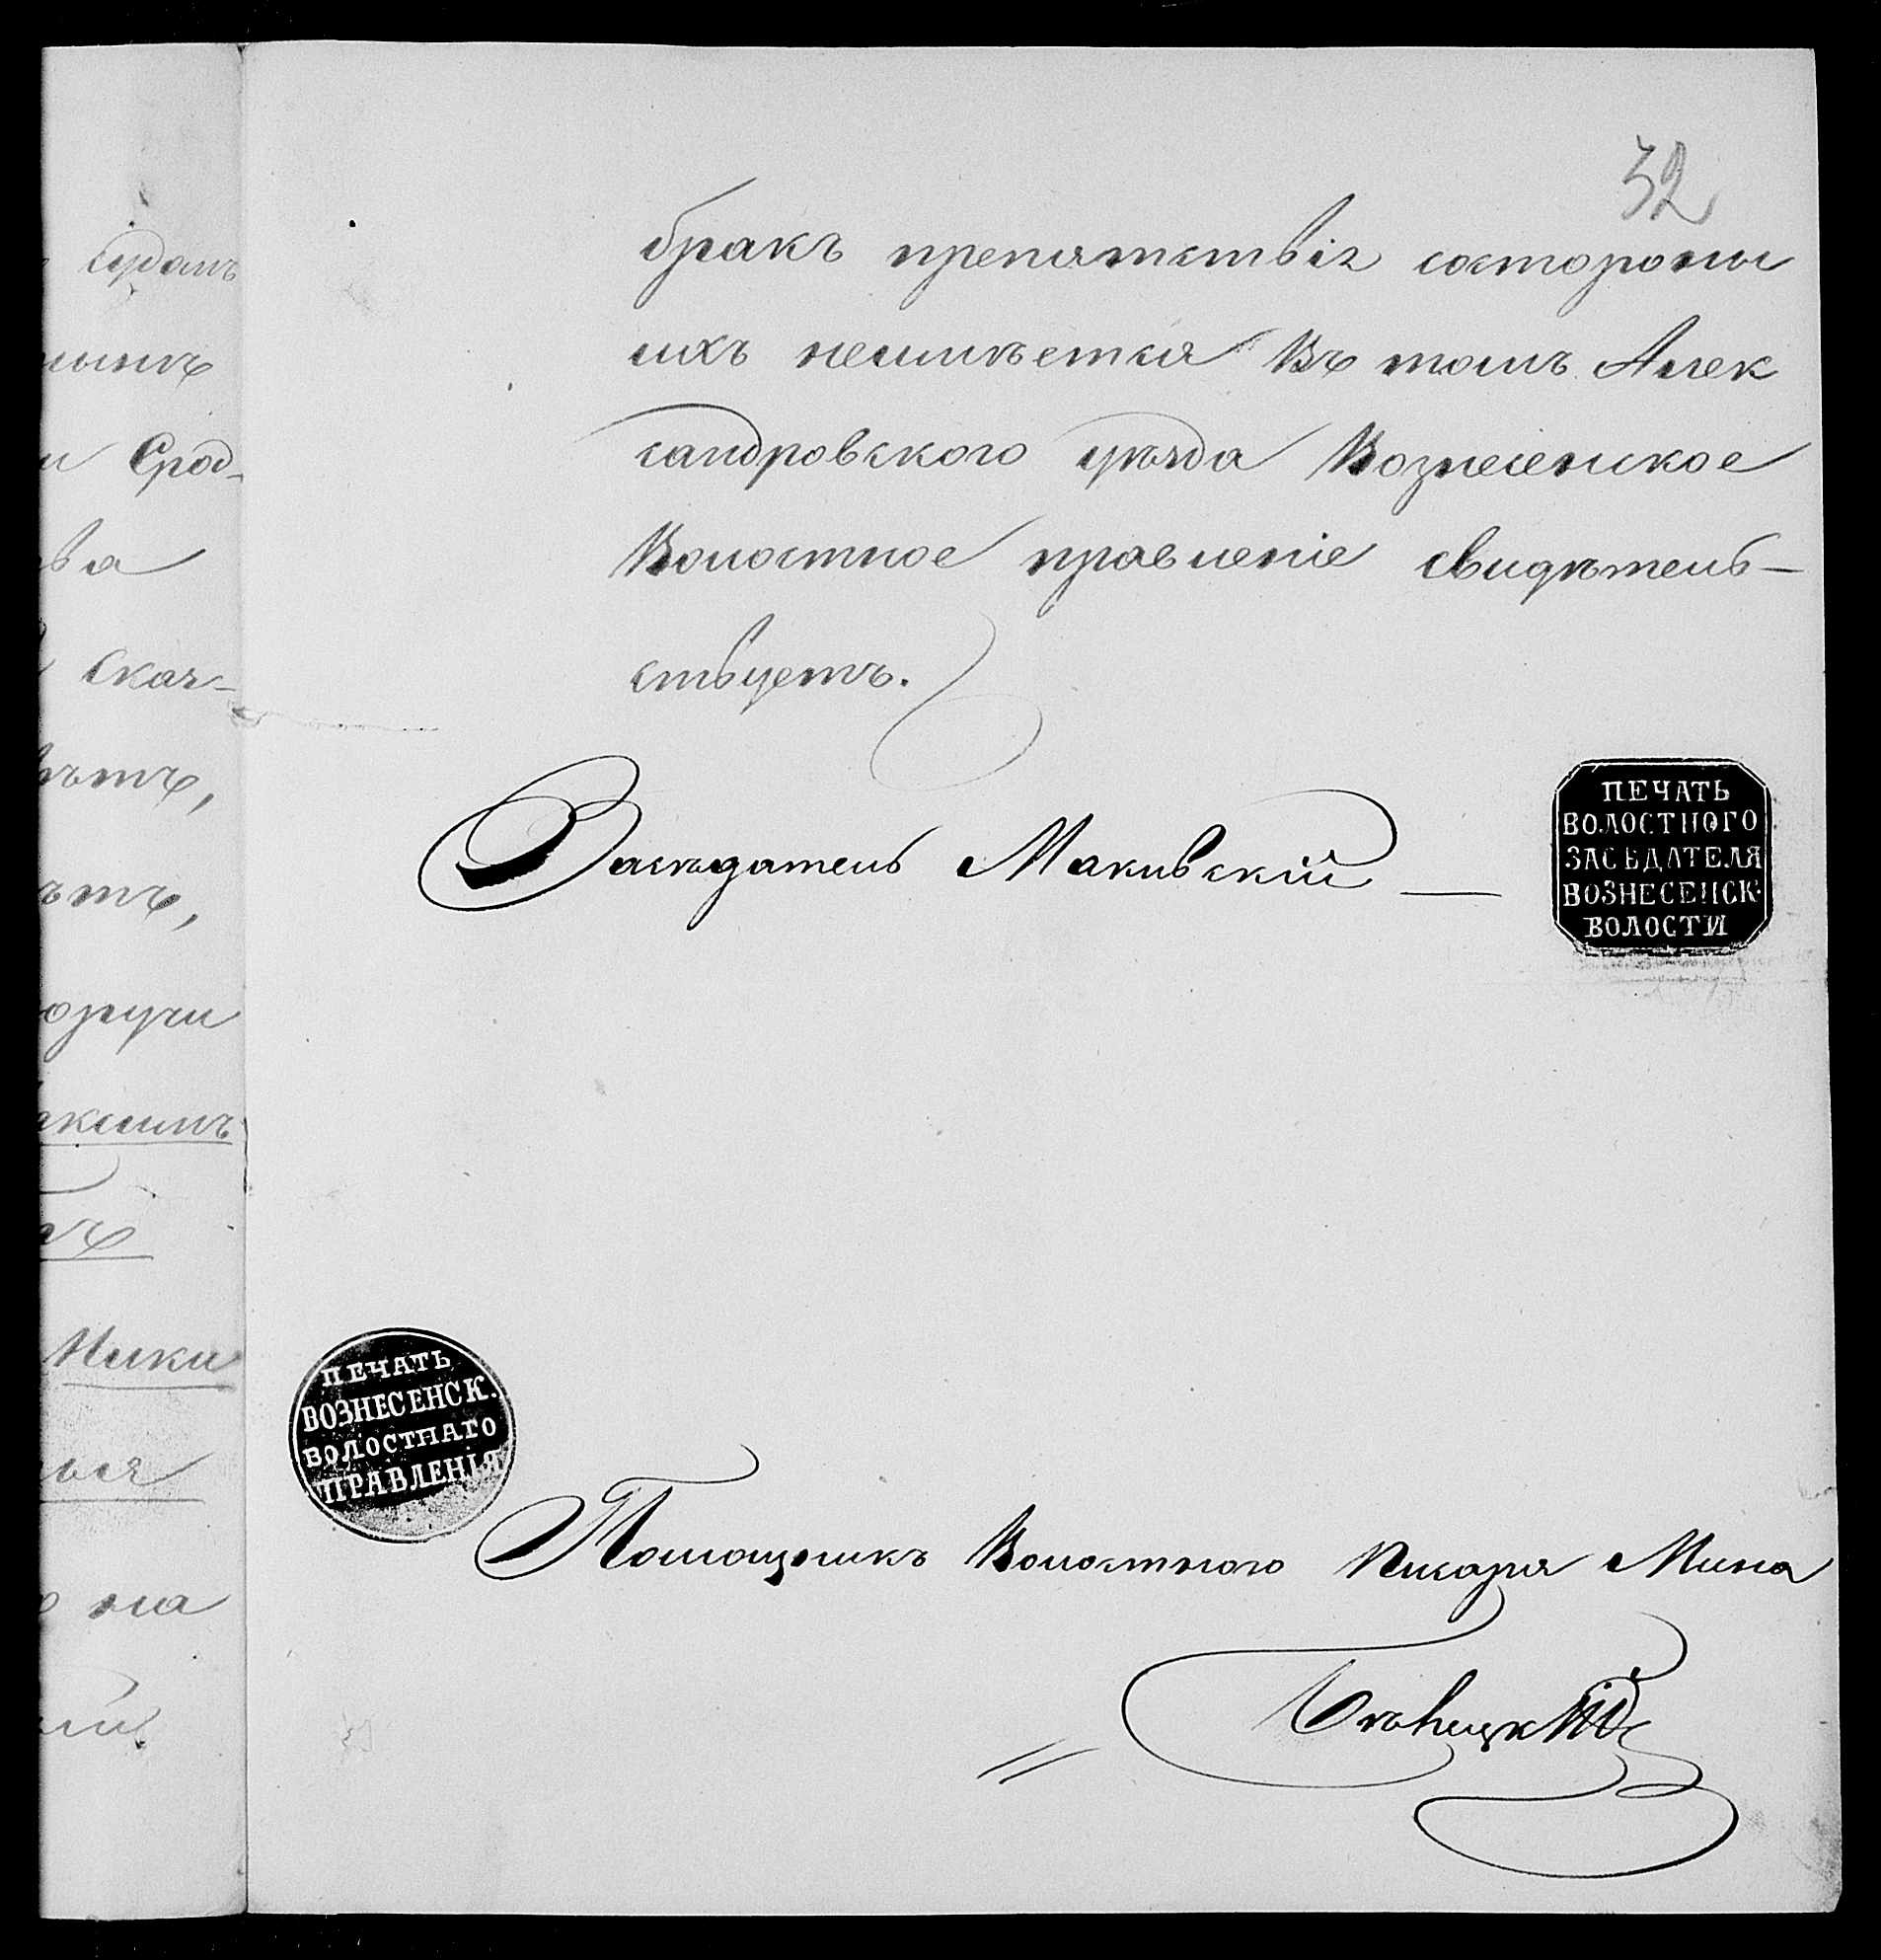 32
бракъ препятствія состороны
ихъ неимѣется Въ томъ Алек
сандровского уѣзда Вознесенское
Волостное правленіе свидѣтель–
ствуетъ.
Засѣдатель Макивскій —
ПЕЧАТЬ
ВОЛОСТНОГО
ЗАСѢДАТЕЛЯ
ВОЗНЕСЕНСК.
ВОЛОСТИ
ПЕЧАТЬ
ВОЗНЕСЕНСК.
ВОЛОСТНАГО
ПРАВЛЕНІЯ
Помощникъ Волостного Писаря Мина
и Срод-
ва
скач-
ѣтъ,
ѣтъ,
аксимъ
Ники
на